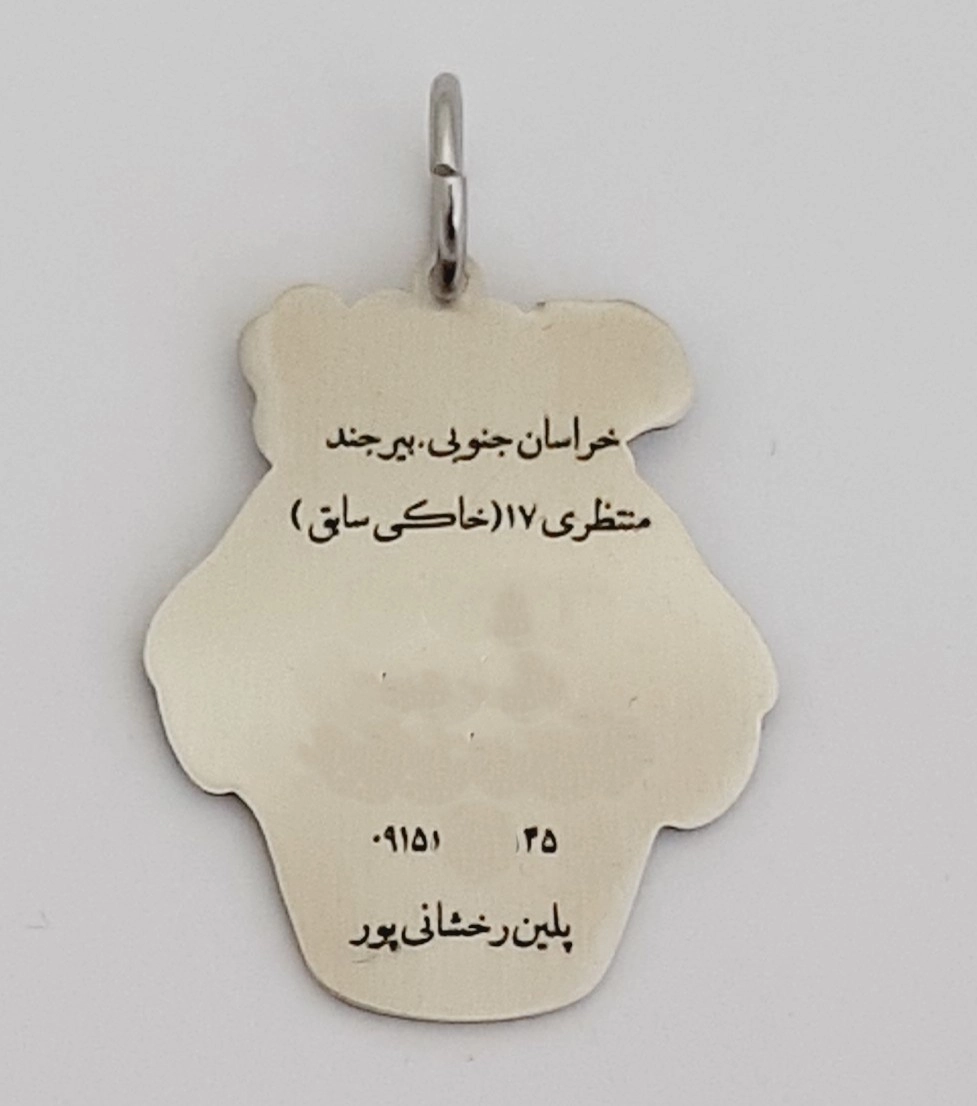 خراسان جنوبی.بیرجند
منتظری ۱۷(خاکی سابق )
۰۹۱۵۱ ۳۵
پلین رخشانی پور